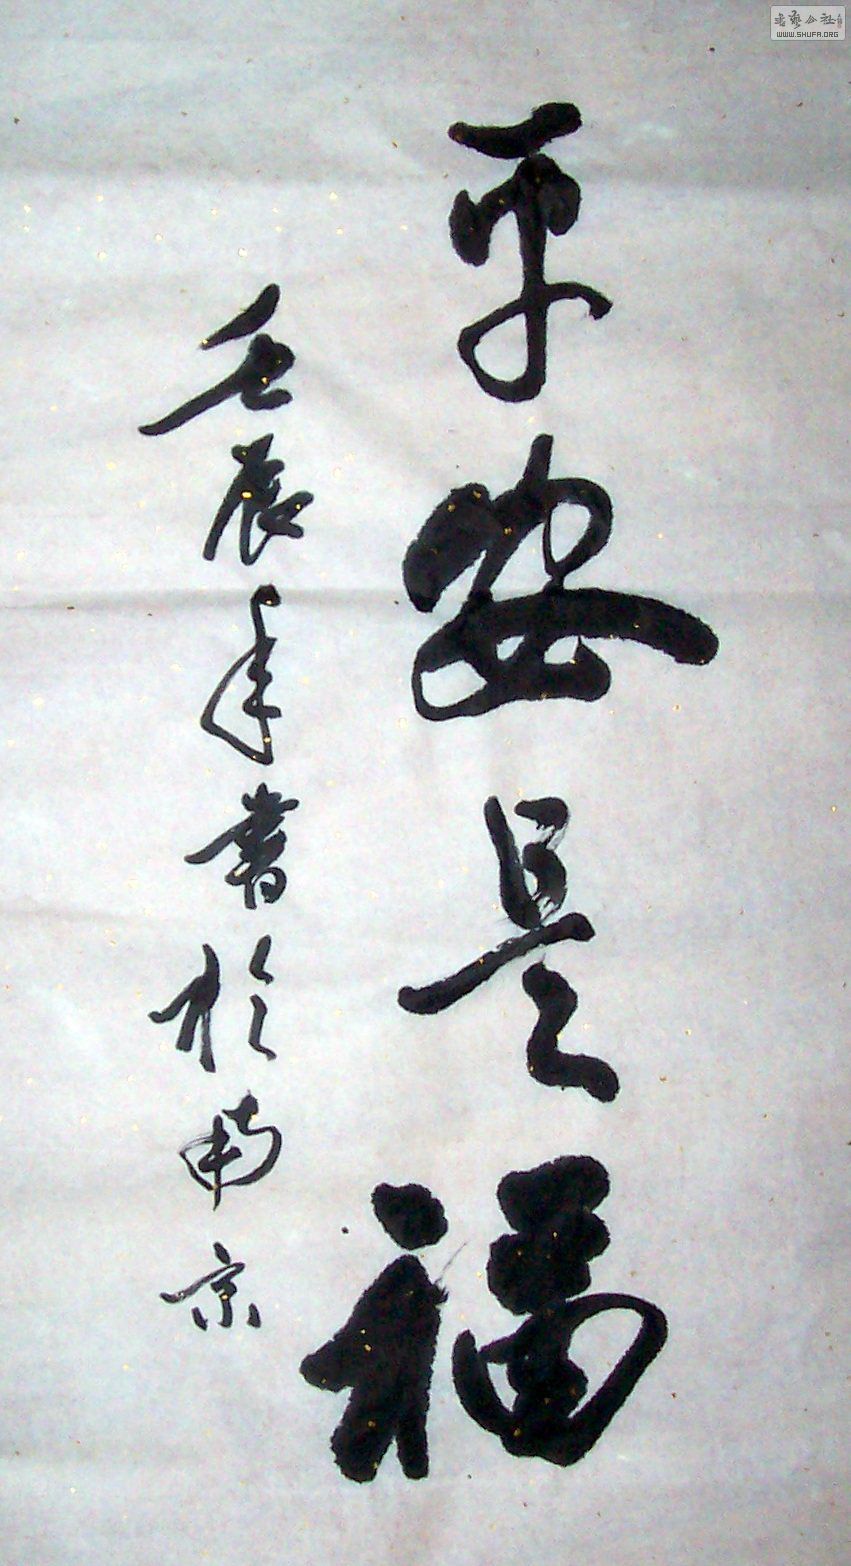 平安是福
壬辰年書於南京
WWW.SHUFA.ORG